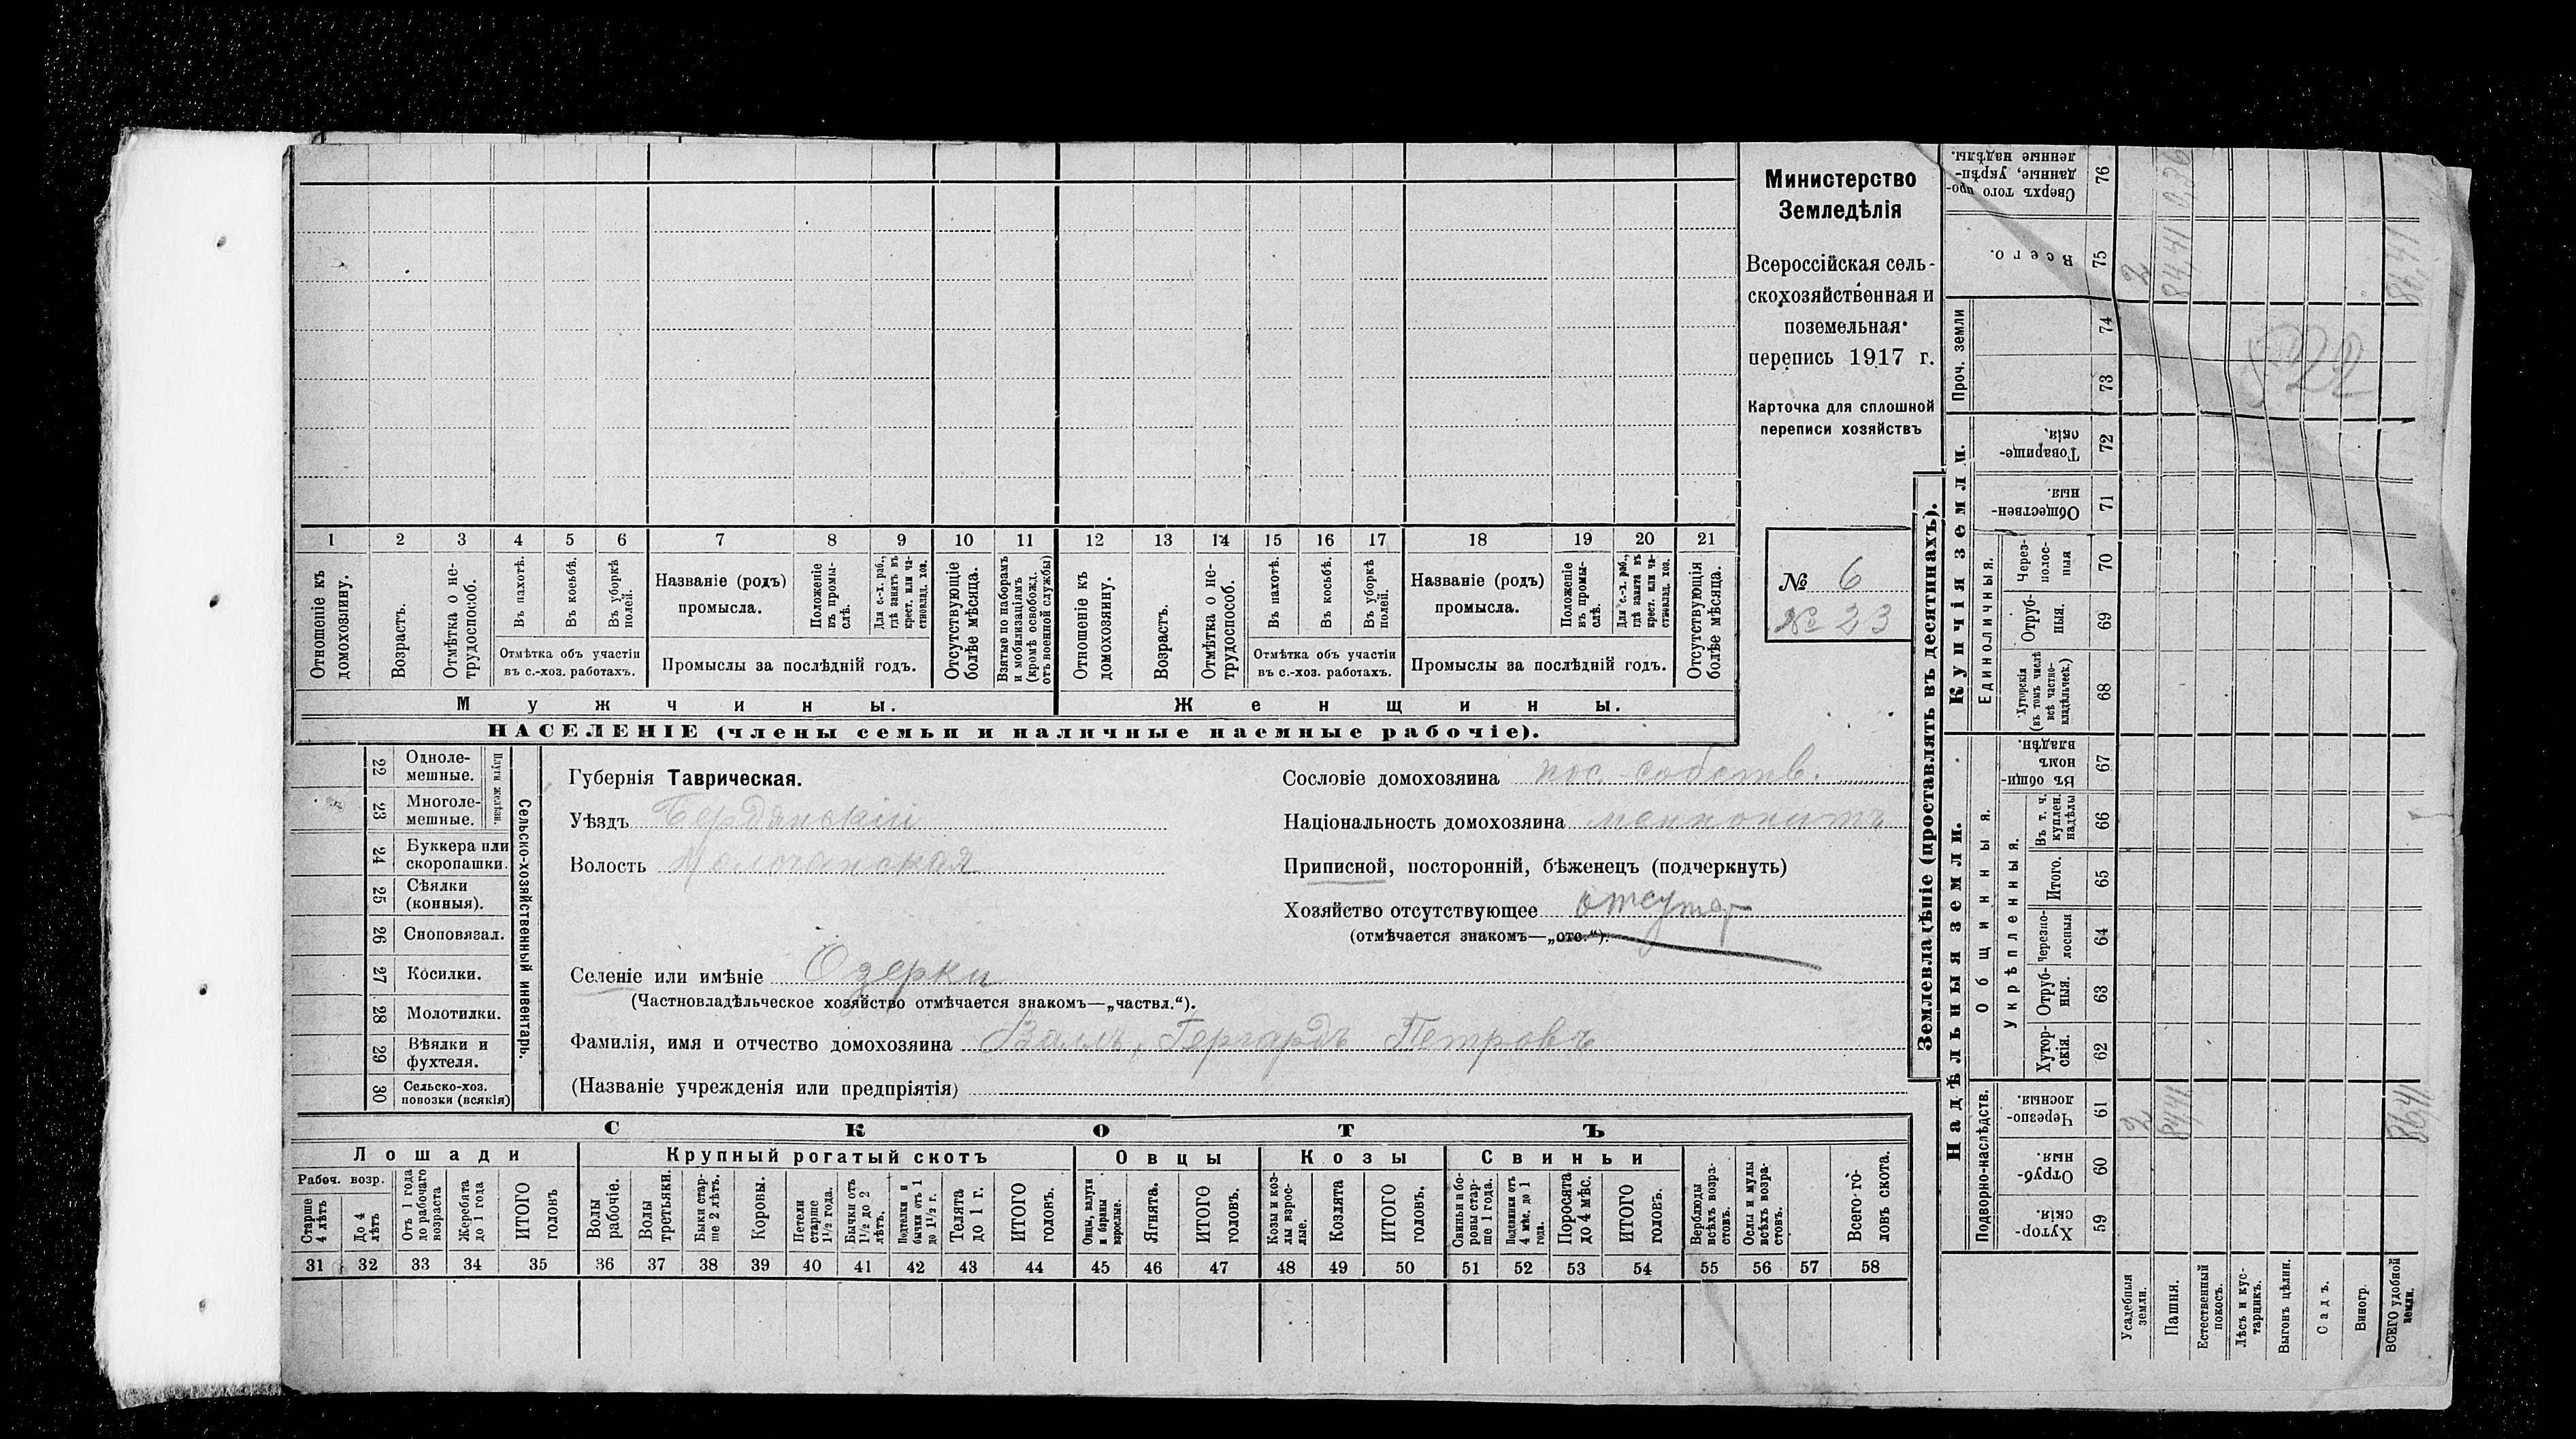 Министерство
Земледѣлія
Всероссійская сель-
скохозяйственная и
поземельная
перепись 1917 г.
Карточка для сплошной
переписи хозяйствъ
№ 6
№ 23
1 2 3 4 5 6 7 8 9 10 11 12 13 14 15 16 17 18 19 20 21
Отношеніе къ домохозяину.
Возрастъ.
Отмѣтка о не-трудоспособ.
Въ пахотѣ.
Въ косьбѣ.
Въ уборкѣ полей.
Отмѣтка объ участіи
въ с.-хоз. работахъ.
Названіе (родъ)
промысла.
Положеніе въ промы-слѣ.
Для с.-х. раб., гдѣ занятъ въ крест. или ча-стновлад. хоз.
Промыслы за послѣдній годъ.
Отсутствующіе болѣе мѣсяца.
Взятые по наборамъ и мобилизаціямъ (кромѣ освобожд. отъ военной службы)
Отношеніе къ домохозяину.
Возрастъ.
Отмѣтка о не-трудоспособ.
Въ пахотѣ.
Въ косьбѣ.
Въ уборкѣ полей.
Отмѣтка объ участіи
въ с.-хоз. работахъ.
Названіе (родъ)
промысла.
Положеніе въ промы-слѣ.
Для с.-х. раб., гдѣ занята въ крест. или ча-стновлад. хоз.
Промыслы за послѣдній годъ.
Отсутствующія болѣе мѣсяца.
Мужчины.
Женщины.
НАСЕЛЕНІЕ (члены семьи и наличные наемные рабочіе).
22 Одноле-мешные.
23 Многоле-мешные.
Плуги желѣзн.
24 Буккера или скоропашки.
25 Сѣялки (конныя).
26 Сноповязал.
27 Косилки.
28 Молотилки.
29 Вѣялки и фухтеля.
30 Сельско-хоз. повозки (всякія)
Сельско-хозяйственный инвентарь.
Губернія Таврическая.
Уѣздъ Бердянскій
Волость Молочанская
Сословіе домохозяина пос. собств.
Національность домохозяина меннонитъ
Приписной, посторонній, бѣженецъ (подчеркнуть)
Хозяйство отсутствующее отсутст
(отмѣчается знакомъ—„отс.“).
Селеніе или имѣніе Одерки
(Частновладѣльческое хозяйство отмѣчается знакомъ—„частвл.“).
Фамилія, имя и отчество домохозяина Валль, Гергардъ Петровъ
(Названіе учрежденія или предпріятія)
СКОТЪ
Лошади
Крупный рогатый скотъ
Овцы
Козы
Свиньи
Рабоч. возр.
Старше 4 лѣтъ
До 4 лѣтъ
Отъ 1 года до рабочаго возраста
Жеребята до 1 года
ИТОГО головъ
Волы рабочіе.
Волы третьяки.
Быки стар-ше 2 лѣтъ.
Коровы.
Нетели старше 1½ года.
Бычки отъ 1½ до 2 лѣтъ.
Подтелки и бычки отъ 1 до 1½ г.
Телята до 1 г.
ИТОГО головъ.
Овцы, валухи и бараны взрослые.
Ягнята.
ИТОГО головъ.
Козы и коз-лы взрос-лые.
Козлята
ИТОГО головъ.
Свиньи и бо-ровы стар-ше 1 года.
Подсвинки отъ 4 мѣс. до 1 года.
Поросята до 4 мѣс.
ИТОГО головъ.
Верблюды всѣхъ возра-стовъ.
Ослы и мулы всѣхъ возра-стовъ.
Всего го-ловъ скота.
31 32 33 34 35 36 37 38 39 40 41 42 43 44 45 46 47 48 49 50 51 52 53 54 55 56 57 58
Землевладѣніе (проставлять въ десятинахъ).
Купчія земли.
Надѣльныя земли.
Проч. земли
Единоличныя.
Общинныя.
Укрѣпленныя.
Подворно-наслѣдств.
Сверхъ того про-данные, укрѣп-ленные надѣлы. 76 0,36
Всего. 75 2 84,41 86,41
74
73
Товарище-скія. 72
Обществен-ныя. 71
Через-полос-ныя 70
Отруб-ныя. 69
Хуторскія (въ томъ числѣ всѣ частно-владѣльческ.) 68
Въ общин-номъ владѣн. 67
Въ т. ч. куплен. надѣлы 66
Итого. 65
Черезпо-лосныя 64
Отруб-ныя. 63
Хутор-скія. 62
Черезпо-лосныя. 61 2 84,41 86,41
Отруб-ныя. 60
Хутор-скія. 59
Усадебныя земли.
Пашня.
Естественный покосъ.
Лѣсъ и кус-тарникъ.
Выгонъ цѣлин.
Садъ.
Виногр.
ВСЕГО удобной земли.